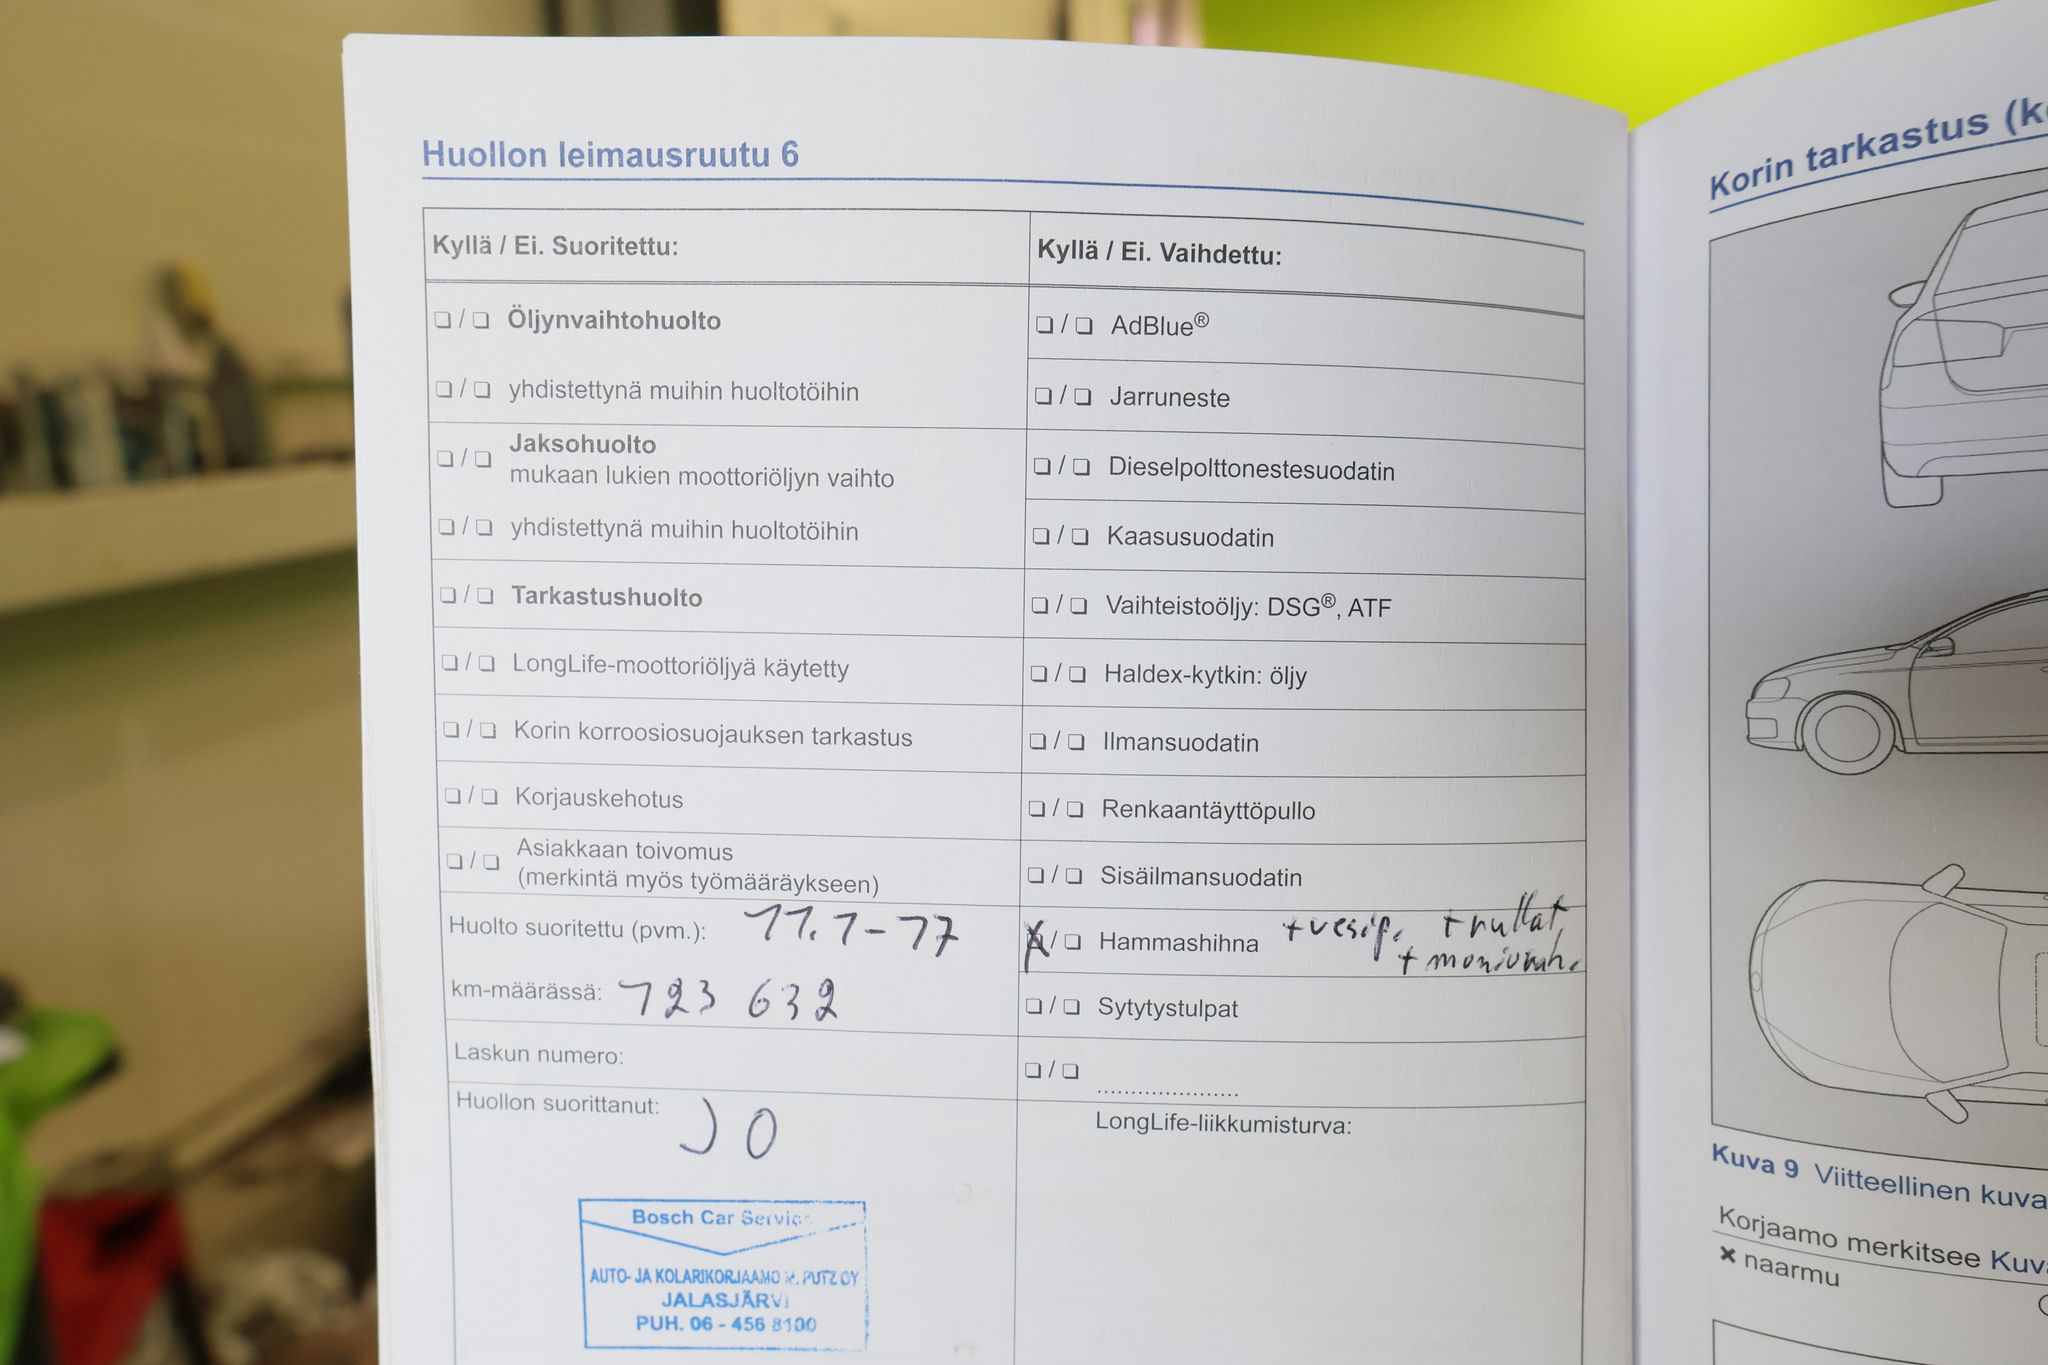 Huollon leimausruutu 6
Kyllä / Ei. Suoritettu:
❏ / ❏ Öljynvaihtohuolto
❏ / ❏ yhdistettynä muihin huoltotöihin
❏ / ❏ Jaksohuolto
mukaan lukien moottoriöljyn vaihto
❏ / ❏ yhdistettynä muihin huoltotöihin
❏ / ❏ Tarkastushuolto
❏ / ❏ LongLife-moottoriöljyä käytetty
❏ / ❏ Korin korroosiosuojauksen tarkastus
❏ / ❏ Korjauskehotus
❏ / ❏ Asiakkaan toivomus
(merkintä myös työmääräykseen)
Huolto suoritettu (pvm.): 11.1-17
km-määrässä: 123 632
Laskun numero:
Huollon suorittanut: JO
Bosch Car Service
AUTO- JA KOLARIKORJAAMO M. PUTZ OY
JALASJÄRVI
PUH. 06 - 456 8100
Kyllä / Ei. Vaihdettu:
❏ / ❏ AdBlue®
❏ / ❏ Jarruneste
❏ / ❏ Dieselpolttonestesuodatin
❏ / ❏ Kaasusuodatin
❏ / ❏ Vaihteistoöljy: DSG®, ATF
❏ / ❏ Haldex-kytkin: öljy
❏ / ❏ Ilmansuodatin
❏ / ❏ Renkaantäyttöpullo
❏ / ❏ Sisäilmansuodatin
X / ❏ Hammashihna +vesip. +rullat,
+moniurah.
❏ / ❏ Sytytystulpat
❏ / ❏ .....................
LongLife-liikkumisturva:
Korin tarkastus (k
Kuva 9 Viitteellinen kuva
Korjaamo merkitsee Kuv
✖ naarmu